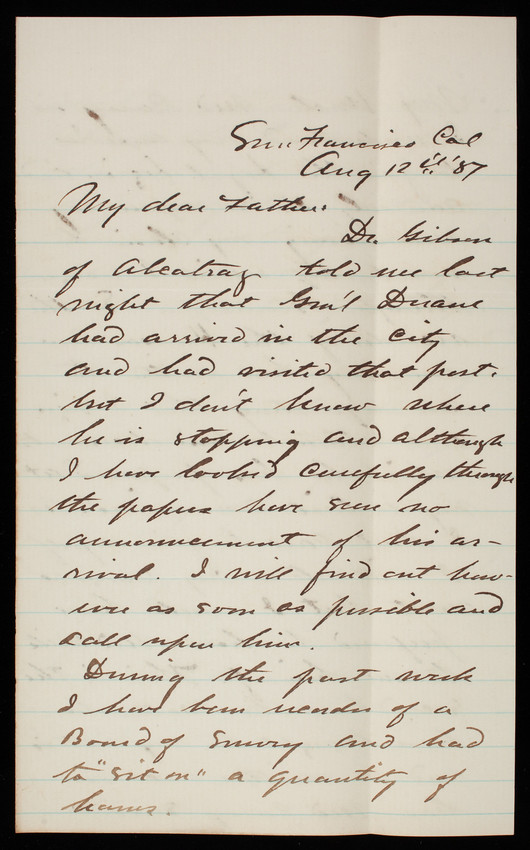 San Francisco Cal
Aug 12th '87
My dear Father:
Dr. Gibson
of Alcatraz told me last
night that Gen'l Duane
had arrived in the city
and had visited that post.
but I don't know where
he is stopping and although
I have looked carefully through
the papers have seen no
announcement of his ar-
rival. I will find out how-
ever as soon as possible and
call upon him.
During the past week
I have been recorder of a
Board of Survey and had
to "sit on" a quantity of
hams.